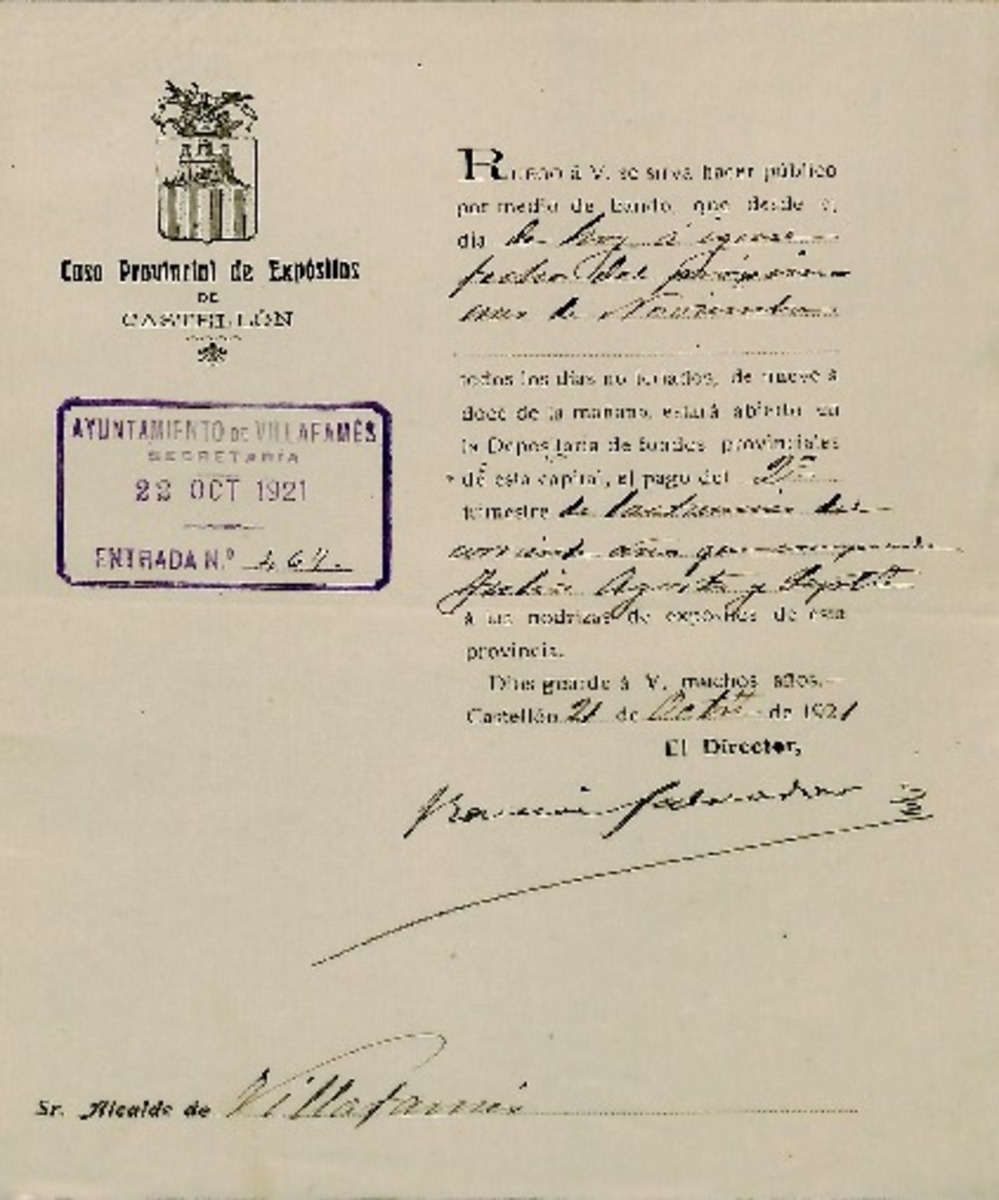 Casa Provincial de Expósitos
DE
CASTELLÓN
AYUNTAMIENTO DE VILLAFAMÉS
SECRETARÍA
22 OCT 1921
ENTRADA N.º 464.
RUEGO á V. se sirva hacer público
por medio de bando, que desde el
día de hoy á igual
fecha del próximo
mes de Noviembre
todos los días no feriados, de nueve á
doce de la mañana, estará abierto en
la Depositaría de fondos provinciales
de esta capital, el pago del 2º
trimestre de lactancias del
corriente año que comprende
Julio Agosto y Septe
á las nodrizas de expósitos de esta
provincia.
Dios guarde á V. muchos años.
Castellón 21 de Octe de 1921
El Director,
Ramón Salvador
Sr. Alcalde de Villafamés